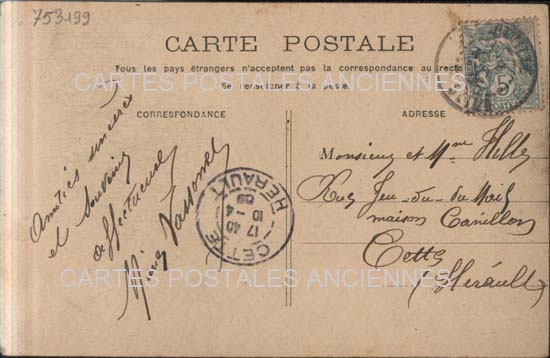 753199
CARTE POSTALE
Tous les pays étrangers n'acceptent pas la correspondance au recto
Se renseigner à la poste
CARTES POSTALES ANCIENNES
CORRESPONDANCE
ADRESSE
Amitiés sincères
et souvenir
affectueux
CETTE
17 40
15 - 4
09
HERAULT
5
Monsieur et Mme
Rue Jeu-du-Mail
maison
Cette
(Hérault)
CARTES POSTALES ANCIENNES